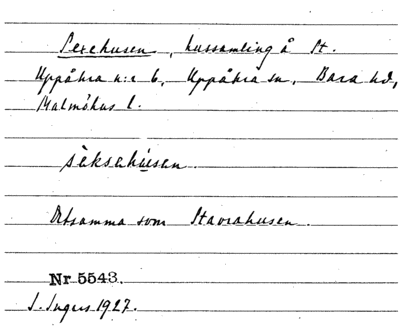 Sexehusen, hussamling å St.
Uppåkra n:r 6, Uppåkra sn, Bara hd,
Malmöhus l.
sèksahùsen.
Detsamma som Stavrahusen.
Nr 5543.
J. Ingers 1927.